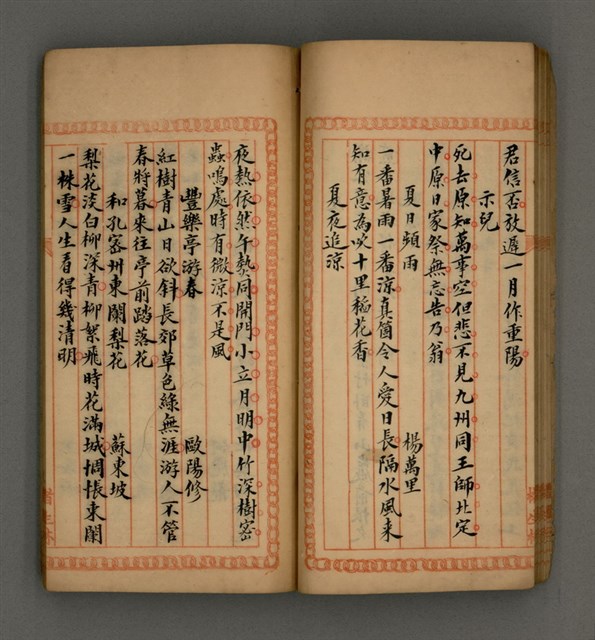 君信否放遲一月作重陽
示兒
死去原知萬事空但悲不見九州同王師北定
中原日家祭無忘告乃翁
夏日頻雨 楊萬里
一番暑雨一番涼真箇令人愛日長隔水風來
知有意為吹十里稻花香
夏夜追涼
夜熱依然午熱同開門小立月明中竹深樹密
蟲鳴處時有微涼不是風
豐樂亭游春 歐陽修
紅樹青山日欲斜長郊草色綠無涯游人不管
春將暮來往亭前踏落花
和孔密州東闌梨花 蘇東坡
梨花淡白柳深青柳絮飛時花滿城惆悵東闌
一株雪人生看得幾清明